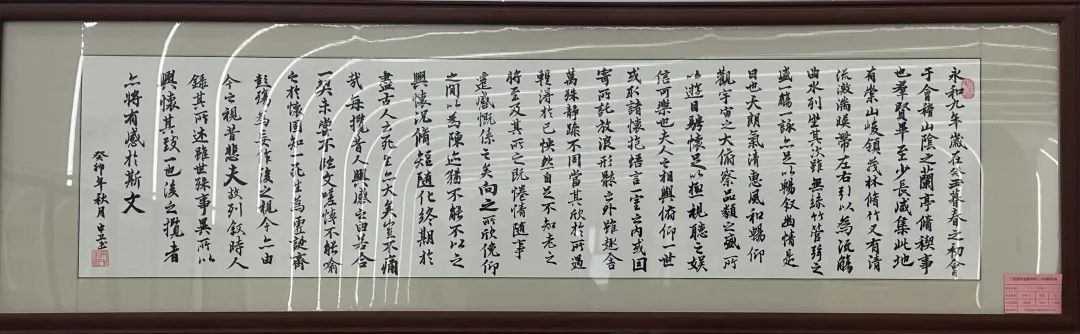 永和九年歲在癸丑暮春之初會
于會稽山陰之蘭亭脩禊事
也羣賢畢至少長咸集此地
有崇山峻領茂林脩竹又有清
流激湍暎帶左右引以為流觴
曲水列坐其次雖無絲竹管弦之
盛一觴一詠亦足以暢叙幽情是
日也天朗氣清惠風和暢仰
觀宇宙之大俯察品類之盛所
以遊目騁懷足以極視聽之娛
信可樂也夫人之相與俯仰一世
或取諸懷抱悟言一室之內或因
寄所託放浪形骸之外雖趣舍
萬殊靜躁不同當其欣於所遇
輕得於己怏然自足不知老之
將至及其所之既惓情隨事
遷感慨係之矣向之所欣俛仰
之閒以為陳迹猶不能不以之
興懷況脩短隨化終期於
盡古人云死生亦大矣豈不痛
哉每攬昔人興感之由若合
一契未嘗不臨文嗟悼不能喻
之於懷固知一死生為虛誕齊
彭殤為妄作後之視今亦由
今之視昔悲夫故列叙時人
錄其所述雖世殊事異所以
興懷其致一也後之攬者
亦將有感於斯文
癸卯年秋月